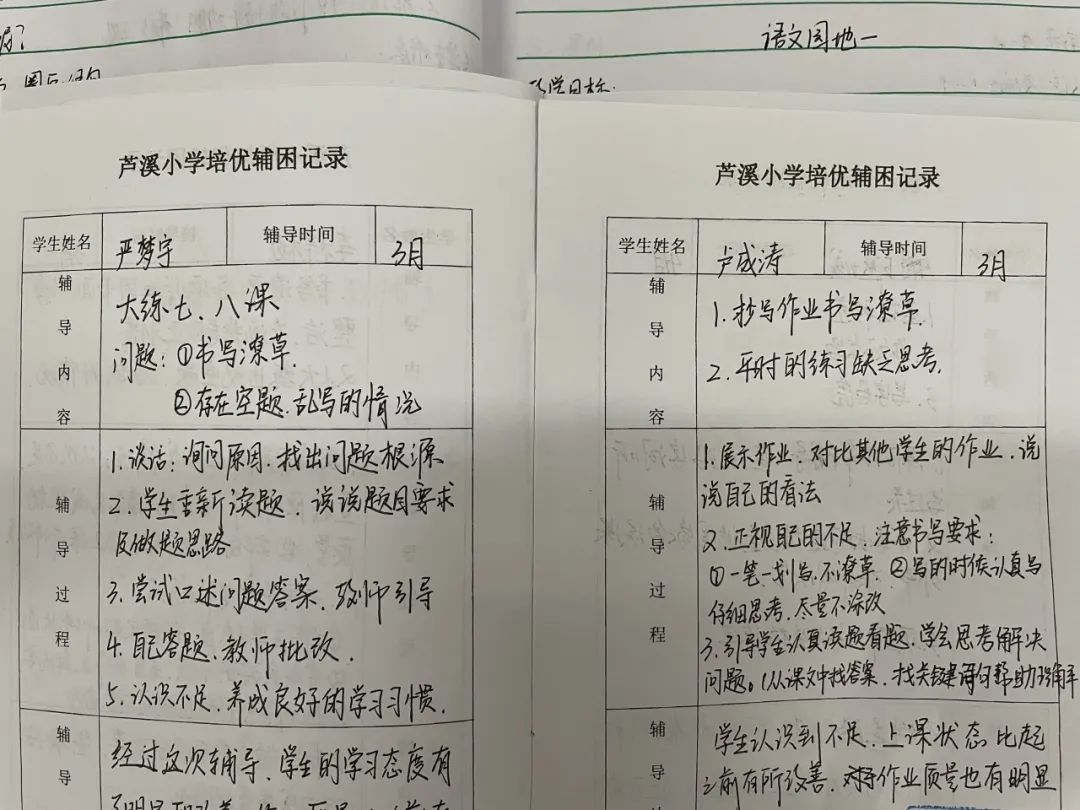 语文园地一
芦溪小学培优辅困记录
学生姓名 严梦宇 辅导时间 3月
辅导内容
大练七、八课
问题：①书写潦草.
②存在空题.乱写的情况
辅导过程
1.谈话：询问原因.找出问题根源
2.学生重新读题.说说题目要求
及做题思路
3.尝试口述问题答案.教师引导
4.自己答题.教师批改.
5.认识不足.养成良好的学习习惯.
辅导
经过这次辅导.学生的学习态度有
芦溪小学培优辅困记录
学生姓名 卢成涛 辅导时间 3月
辅导内容
1.抄写作业书写潦草.
2.平时的练习缺乏思考.
辅导过程
1.展示作业.对比其他学生的作业.说
说自己的看法
2.正视自己的不足.注意书写要求：
①一笔一划写.不潦草.②写的时候认真写
仔细思考.尽量不涂改
3.引导学生认真读题看题.学会思考解决
问题。(从课文中找答案.找关键词句帮助理解
辅导
学生认识到不足.上课状态比起
之前有所改善.作业质量也有明显